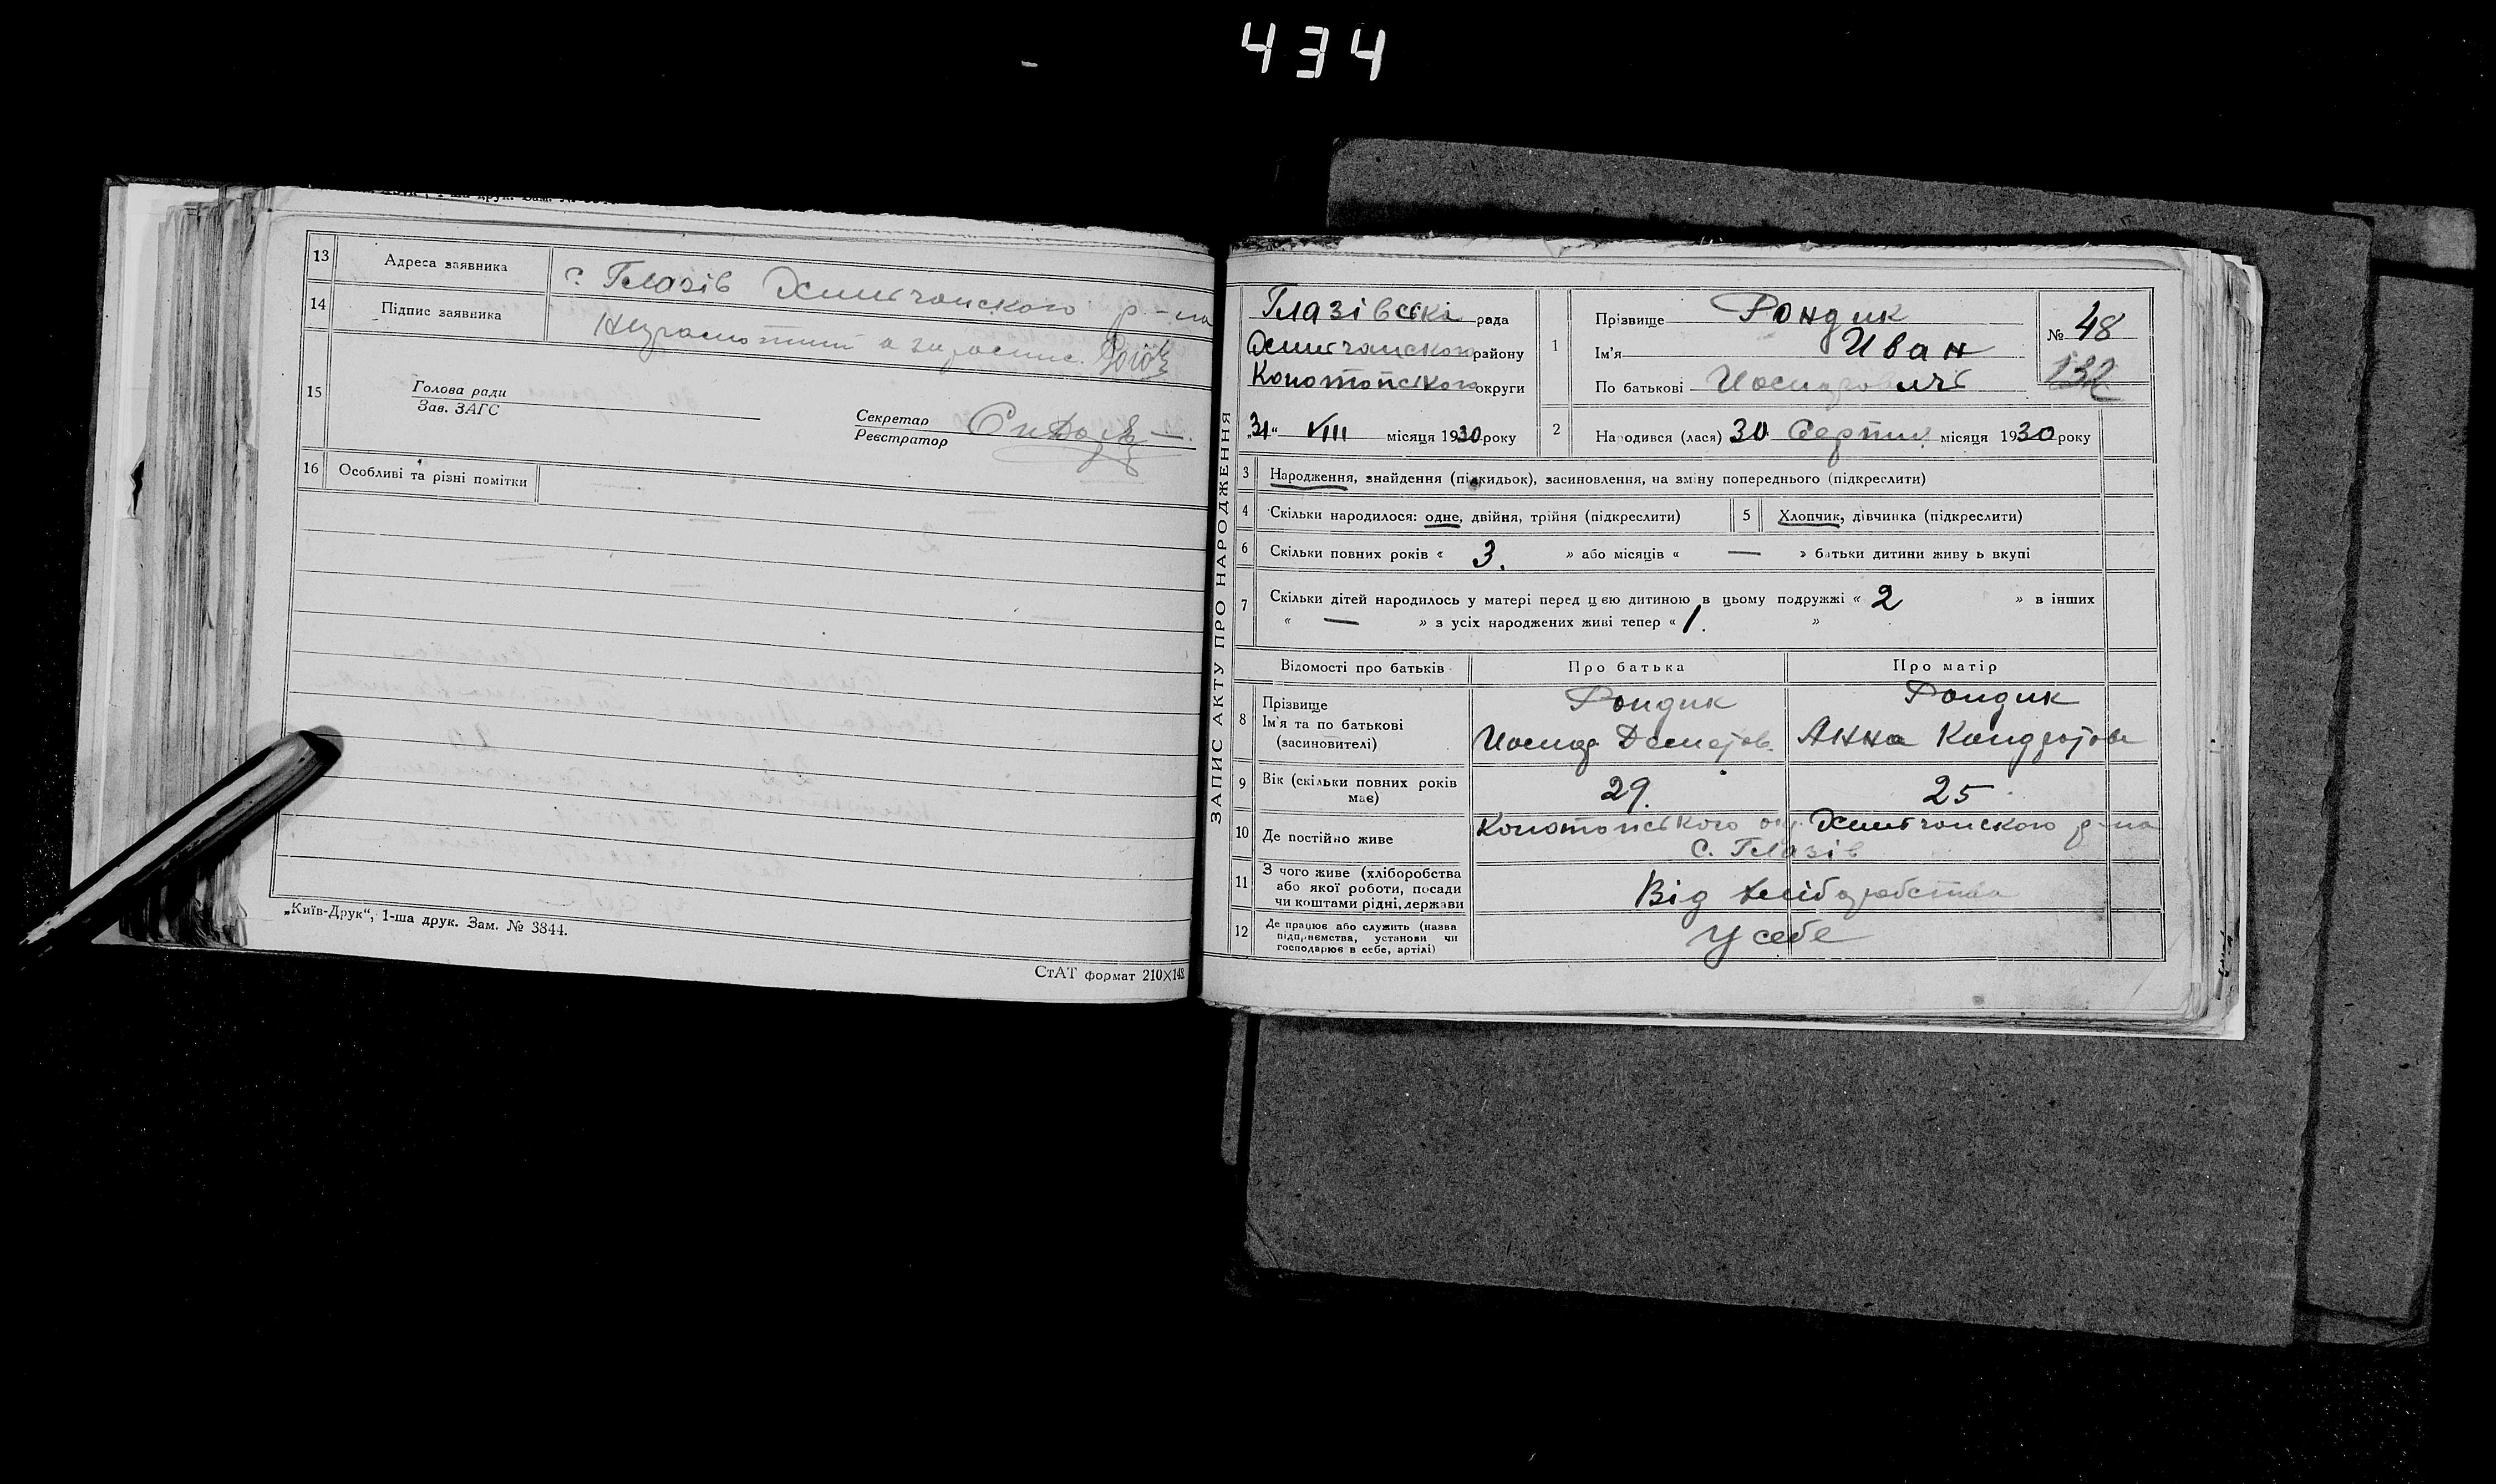 434
13 Адреса заявника с. Глазів Ямпільського р-на
14 Підпис заявника
15 Голова ради
Зав. ЗАГС
Секретар
Реєстратор
16 Особливі та різні помітки
„Київ-Друк“, 1-ша друк. Зам. № 3844.
СтАТ формат 210×148
ЗАПИС АКТУ ПРО НАРОДЖЕННЯ
Глазівські рада
району
Конотопського округи
„31“ VIII місяця 1930 року
1 Прізвище Рондик
Ім'я Иван
По батькові Иосипович
№ 48
132
2 Народився (лася) 30 Серпня місяця 1930 року
3 Народження, знайдення (підкидьок), засиновлення, на зміну попереднього (підкреслити)
4 Скільки народилося: одне, двійня, трійня (підкреслити) 5 Хлопчик, дівчинка (підкреслити)
6 Скільки повних років « 3. » або місяців « — » батьки дитини живуть вкупі
7 Скільки дітей народилось у матері перед цією дитиною в цьому подружжі « 2 » в інших
« — » з усіх народжених живі тепер « 1. »
Відомості про батьків Про батька Про матір
8 Прізвище
Ім'я та по батькові
(засиновителі)
Рондик Рондик
Иосип Анна
9 Вік (скільки повних років
має)
29. 25
10 Де постійно живе
Конотопського ок.
с. Глазів
11 З чого живе (хліборобства
або якої роботи, посади
чи коштами рідні, держави
Від хліборобства
12 Де працює або служить (назва
підприємства, установи чи
господарює в себе, артілі)
У себе